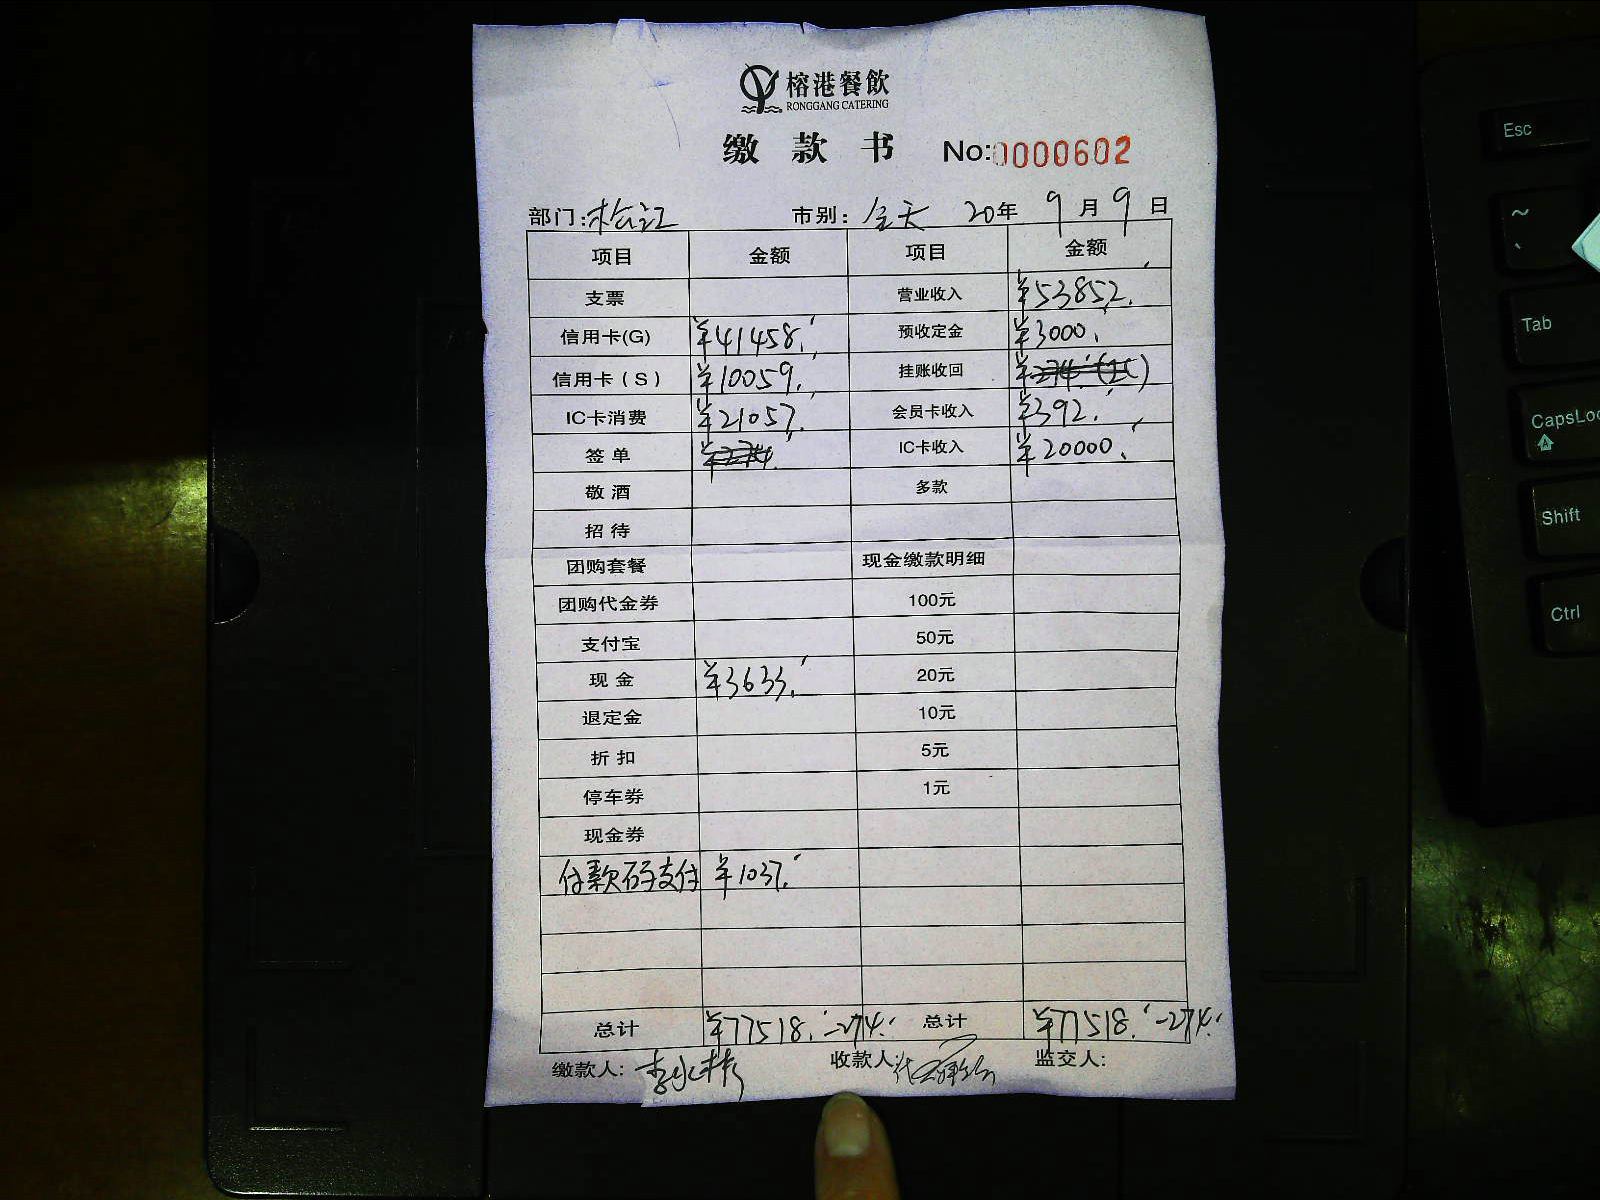 榕港餐飲
RONGGANG CATERING
缴 款 书 No:0000602
部门:松江 市别: 全天 20年 9月 9日
项目 金额 项目 金额
支票 营业收入 ¥53852.
信用卡(G) ¥41458. 预收定金 ¥3000.
信用卡(S) ¥10059. 挂账收回
IC卡消费 ¥21057. 会员卡收入 ¥392.
签 单 ¥274. IC卡收入 ¥20000.
敬 酒 多款
招 待
团购套餐 现金缴款明细
团购代金券 100元
支付宝 50元
现 金 ¥3633. 20元
退定金 10元
折 扣 5元
停车券 1元
现金券
付款码支付 ¥1037.
总计 ¥77518. -274. 总计 ¥77518. -274.
缴款人: 收款人: 监交人:
Esc
~
`
Tab
CapsLoc
Shift
Ctrl